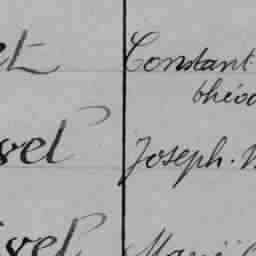 et Constant
théo
vel Joseph.
vel Marie